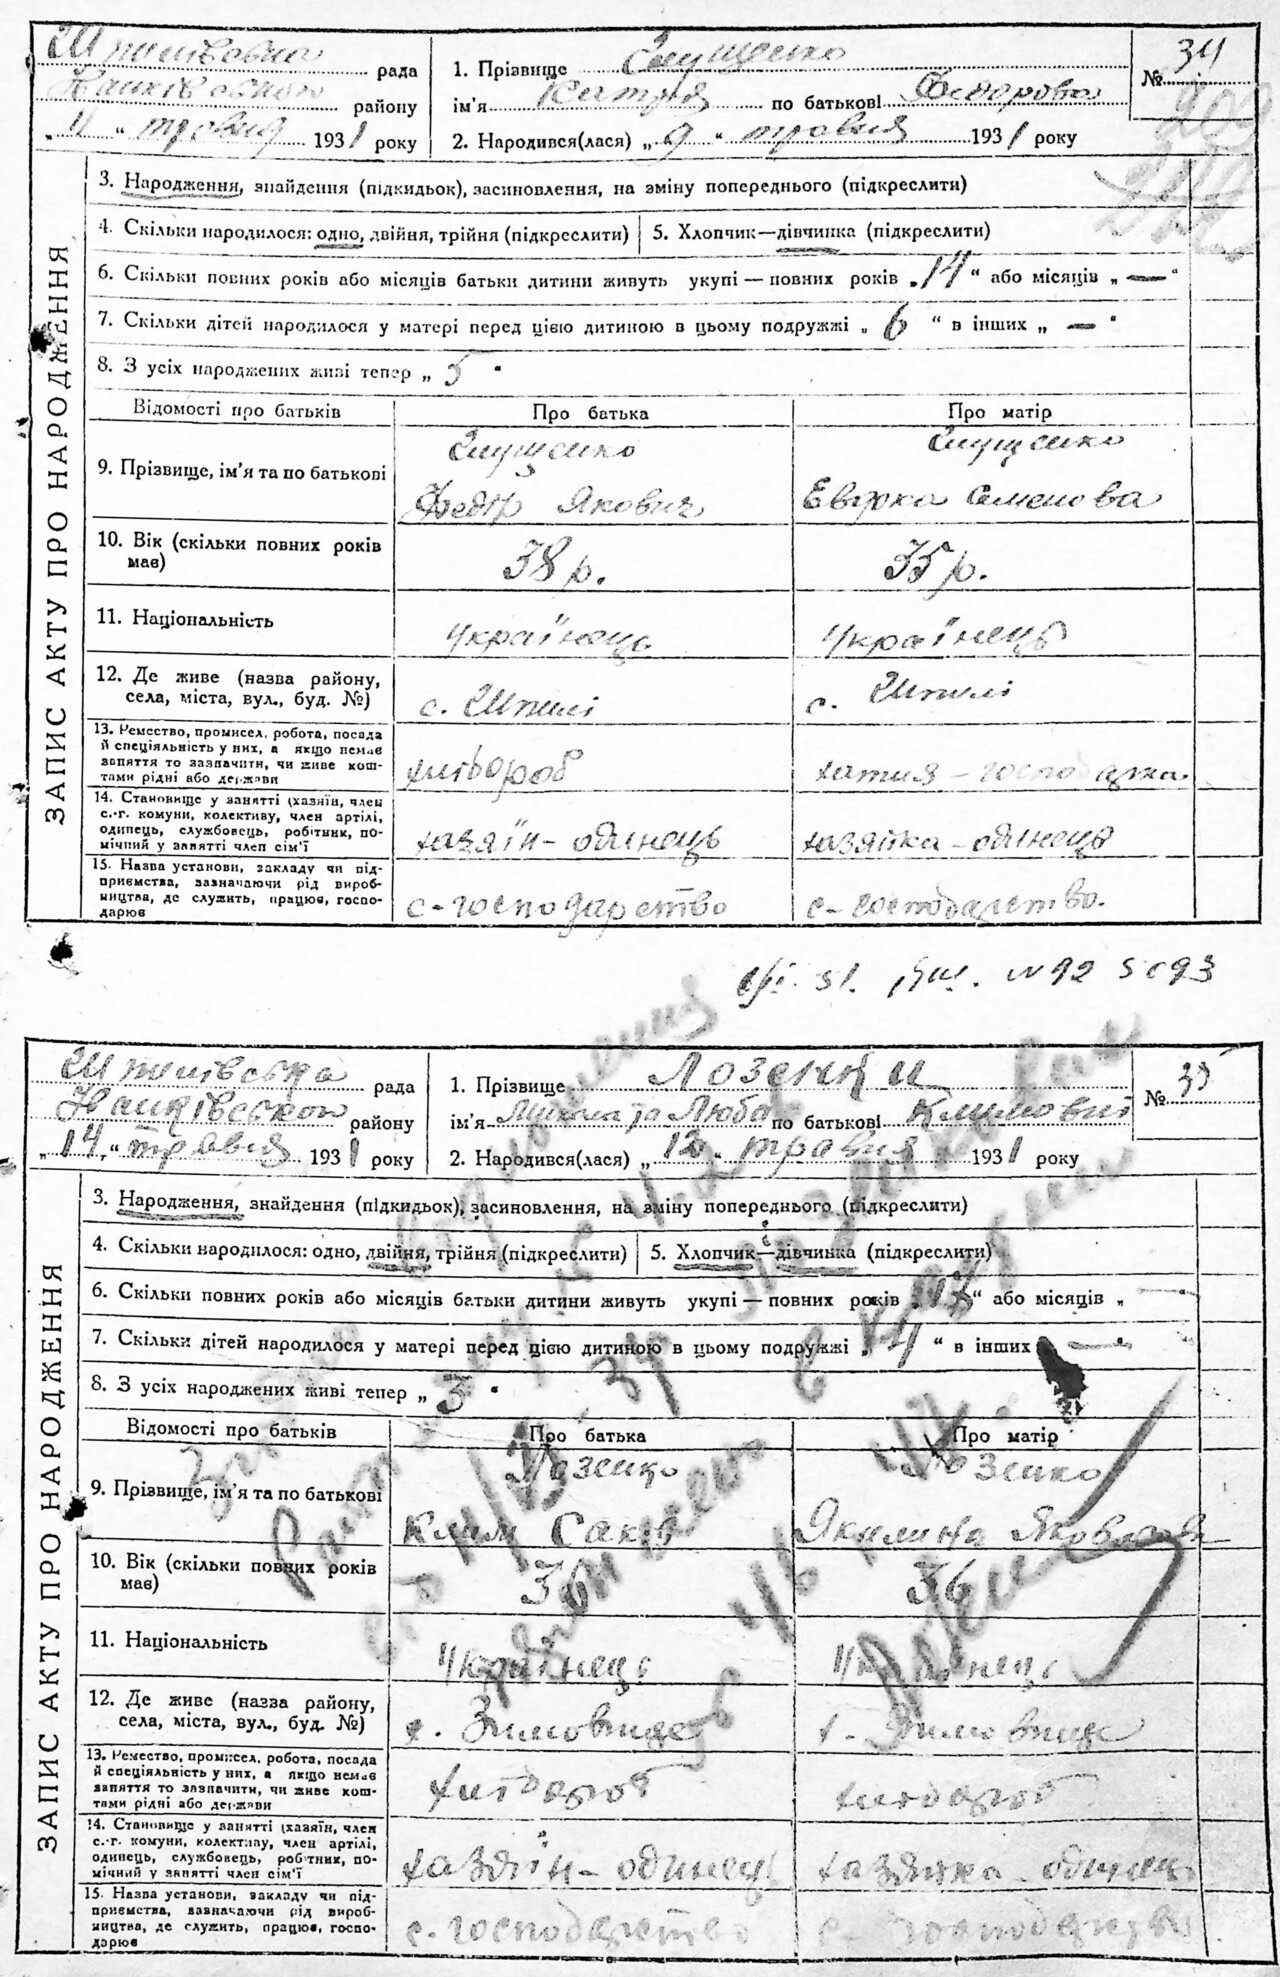 Шпилівська рада
району
„ 11 “ травня 1931 року
1. Прізвище Глущенко
ім’я Катря по батькові Федорова
2. Народився(лася) „ 9 “ травня 1931 року
№ 34
ЗАПИС АКТУ ПРО НАРОДЖЕННЯ
3. Народження, знайдення (підкидьок), засиновлення, на зміну попереднього (підкреслити)
4. Скільки народилося: одно, двійня, трійня (підкреслити)
5. Хлопчик—дівчинка (підкреслити)
6. Скільки повних років або місяців батьки дитини живуть укупі — повних років „ 14 “ або місяців „ — “
7. Скільки дітей народилося у матері перед цією дитиною в цьому подружжі „ 6 “ в інших „ — “
8. З усіх народжених живі тепер „ 5 “
Відомості про батьків Про батька Про матір
9. Прізвище, ім’я та по батькові
Глущенко Глущенко
Федір Якович Евфрка Семенова
10. Вік (скільки повних років
має)
38 р. 35 р.
11. Національність українець українець
12. Де живе (назва району,
села, міста, вул., буд. №)
с. Шпилі с. Шпилі
13. Ремество, промисел, робота, посада
й спеціяльність у них, а якщо немає
заняття то зазначити, чи живе кош-
тами рідні або держави
хлібороб хатня – господарка
14. Становище у занятті (хазяїн, член
с.-г. комуни, колективу, член артілі,
одинець, службовець, робітник, по-
мічний у занятті член сім’ї
хазяїн – одинець хазяйка – одинець
15. Назва установи, закладу чи під-
приємства, зазначаючи рід вироб-
ництва, де служить, працює, госпо-
дарює
с – господарство с – господарство.
Шпилівська рада
району
„ 14 “ травня 1931 року
1. Прізвище Лозенки
ім’я Микола та Люба по батькові Климови
2. Народився(лася) „ 12 “ травня 1931 року
№ 35
ЗАПИС АКТУ ПРО НАРОДЖЕННЯ
3. Народження, знайдення (підкидьок), засиновлення, на зміну попереднього (підкреслити)
4. Скільки народилося: одно, двійня, трійня (підкреслити)
5. Хлопчик—дівчинка (підкреслити)
6. Скільки повних років або місяців батьки дитини живуть укупі — повних років „ “ або місяців „ “
7. Скільки дітей народилося у матері перед цією дитиною в цьому подружжі „ 4 “ в інших „ — “
8. З усіх народжених живі тепер „ 3 “
Відомості про батьків Про батька Про матір
9. Прізвище, ім’я та по батькові
Лозенко Лозенко
Клим Саків Якилина Яковлева
10. Вік (скільки повних років
має)
36 36
11. Національність українець українець
12. Де живе (назва району,
села, міста, вул., буд. №)
с. Зимовище с. Зимовище
13. Ремество, промисел, робота, посада
й спеціяльність у них, а якщо немає
заняття то зазначити, чи живе кош-
тами рідні або держави
хлібороб хлібороб
14. Становище у занятті (хазяїн, член
с.-г. комуни, колективу, член артілі,
одинець, службовець, робітник, по-
мічний у занятті член сім’ї
хазяїн – одинець хазяйка одинець
15. Назва установи, закладу чи під-
приємства, зазначаючи рід вироб-
ництва, де служить, працює, госпо-
дарює
с. – господарство с – господарство